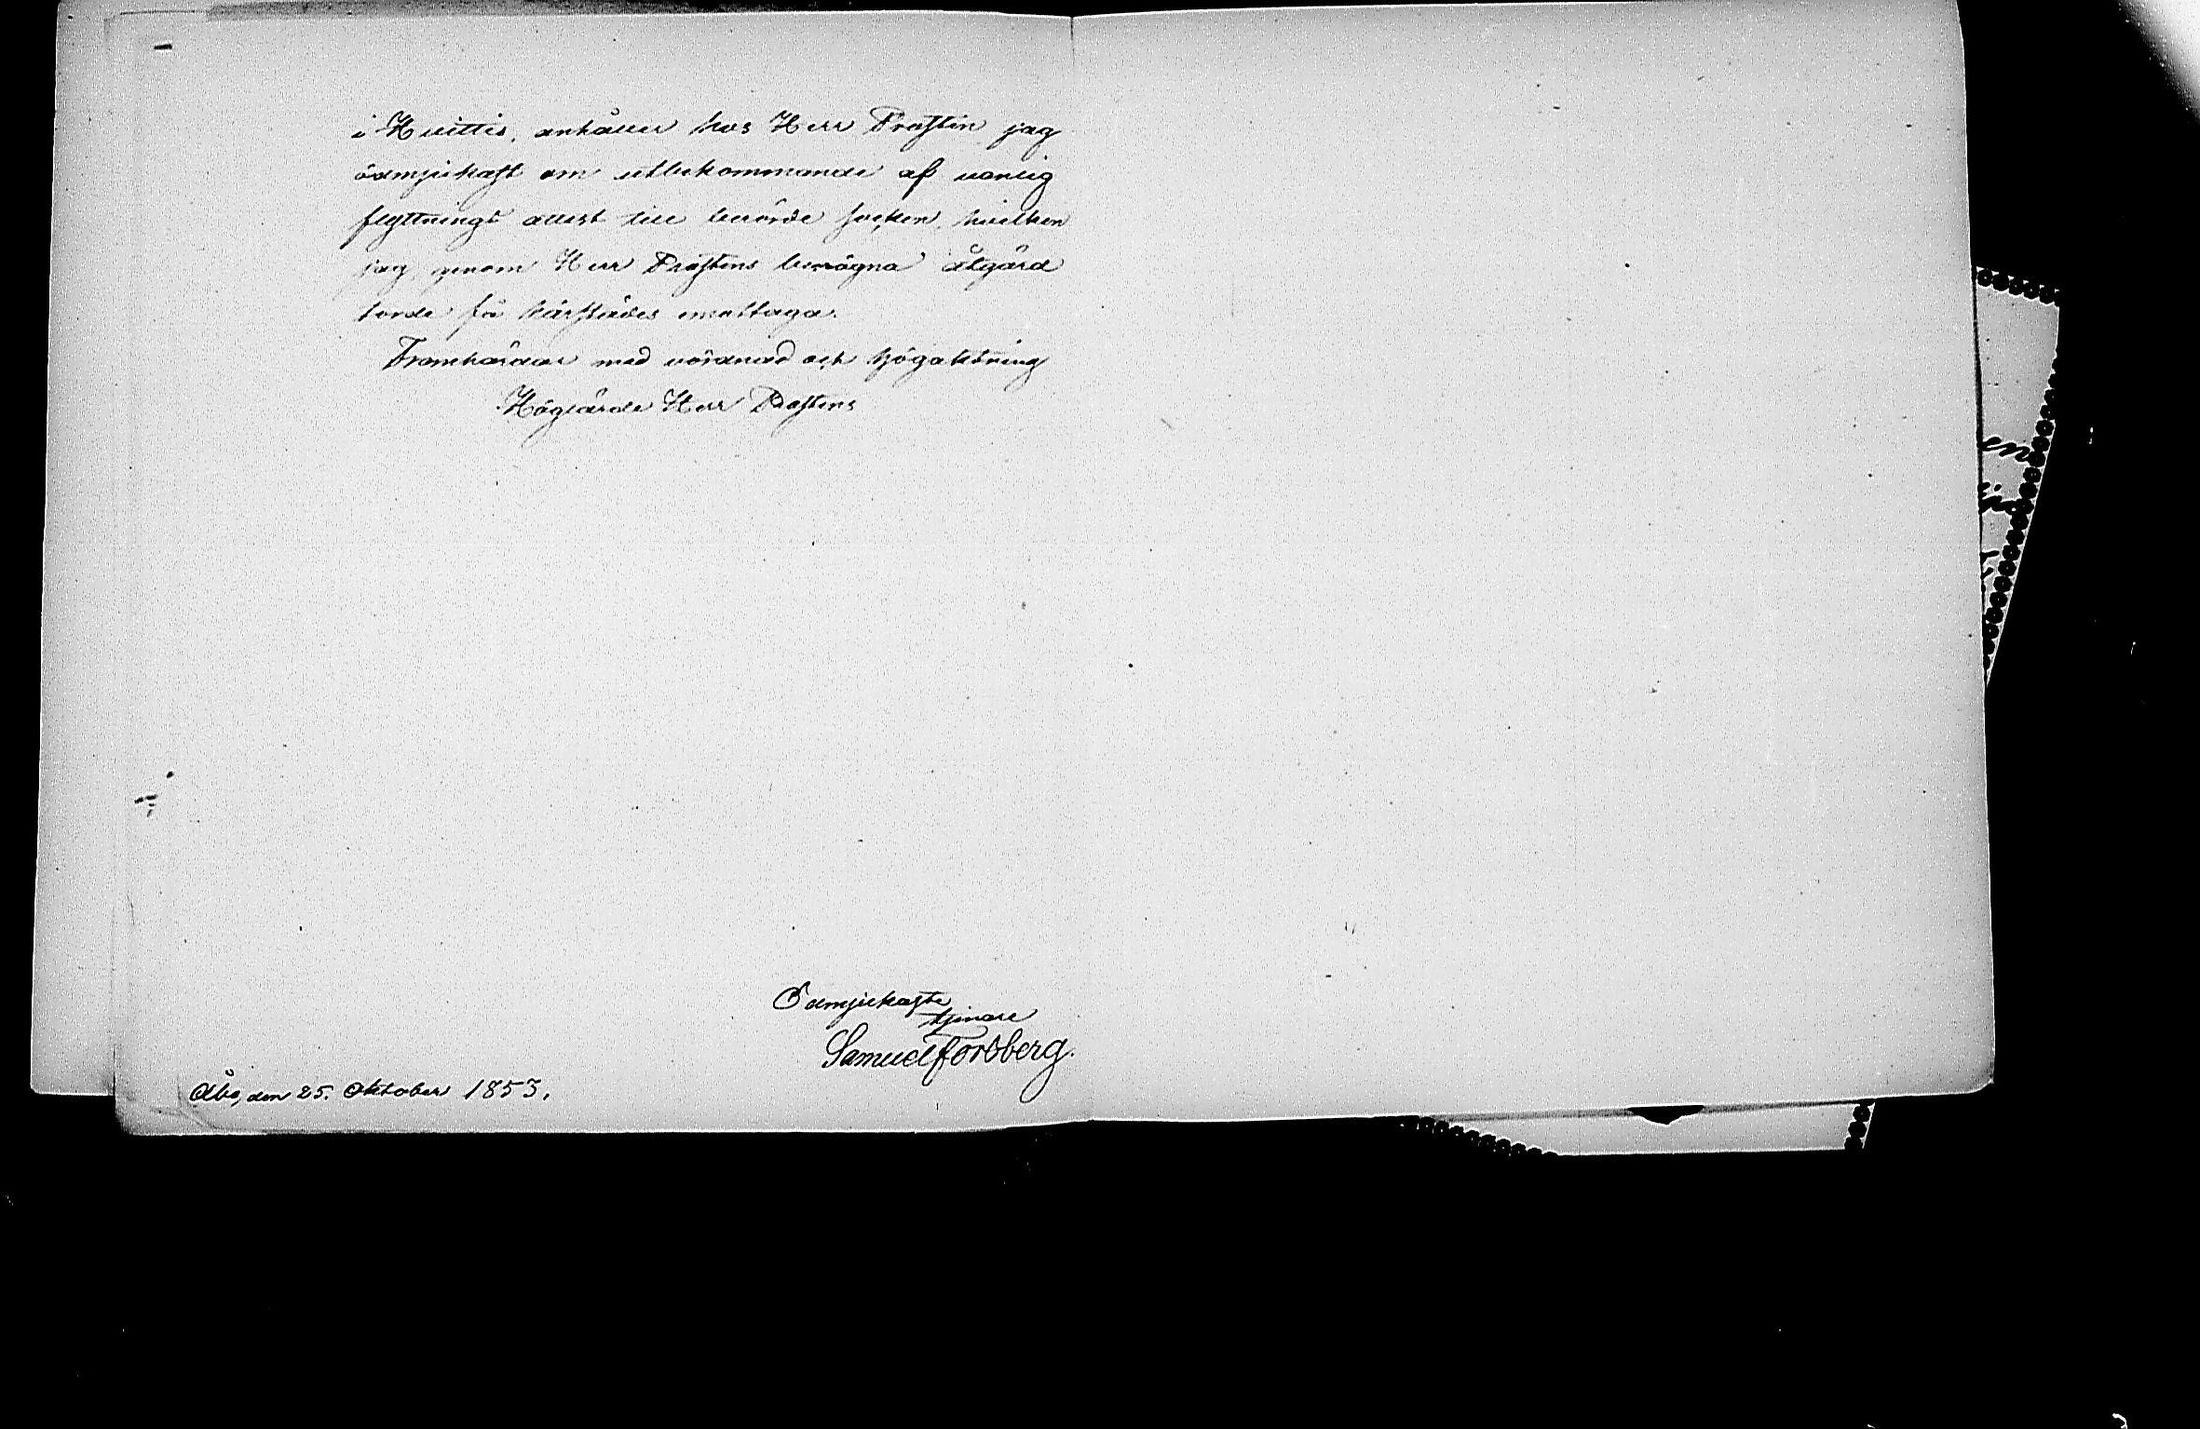 i Huittis, anhåller hos Herr Prosten jag
ödmjukast om utbekommande af vanlig
flyttnings attest till berörde socken, hvilken
jag genom Herr Prostens benägna åtgärd
torde få härstädes emottaga.
Framhärdar med vördnad och högaktning
Höglärde Herr Prostens
Ödmjukaste
tjenare
Samuel Forsberg.
Åbo, den 25. Oktober 1853.
en